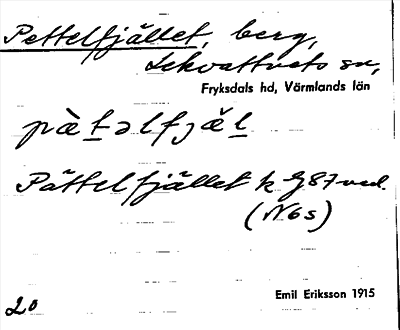 Pettelfjället, berg,
Lekvattnets sn,
Fryksdals hd, Värmlands län
pàt̲əlfjäl̲
Pättelfjället k Gj87 v ed.
(N6s)
Emil Eriksson 1915
20